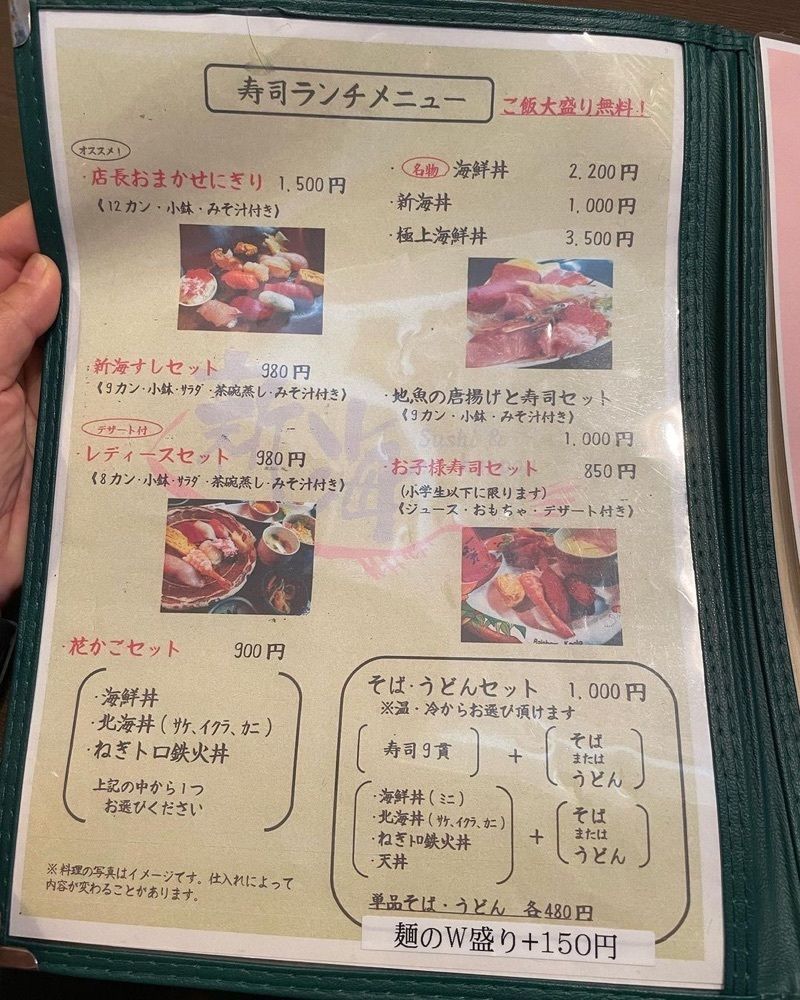 寿司ランチメニュー
ご飯大盛り無料!
オススメ!
・店長おまかせにぎり 1,500円
《12カン・小鉢・みそ汁付き》
・新海すしセット 980円
《9カン・小鉢・サラダ・茶碗蒸し・みそ汁付き》
デザート付
・レディースセット 980円
《8カン・小鉢・サラダ・茶碗蒸し・みそ汁付き》
・花かごセット 900円
・海鮮丼
・北海丼(サケ、イクラ、カニ)
・ねぎトロ鉄火丼
上記の中から1つ
お選びください
※料理の写真はイメージです。仕入れによって
内容が変わることがあります。
・名物 海鮮丼 2,200円
・新海丼 1,000円
・極上海鮮丼 3,500円
・地魚の唐揚げと寿司セット
《9カン・小鉢・みそ汁付き》
1,000円
・お子様寿司セット 850円
(小学生以下に限ります)
《ジュース・おもちゃ・デザート付き》
そば・うどんセット 1,000円
※温・冷からお選び頂けます
寿司9貫 + そば
または
うどん
・海鮮丼(ミニ)
・北海丼(サケ、イクラ、カニ)
・ねぎトロ鉄火丼
・天丼
+ そば
または
うどん
単品そば・うどん 各480円
麺のW盛り+150円
新海
Sushi &